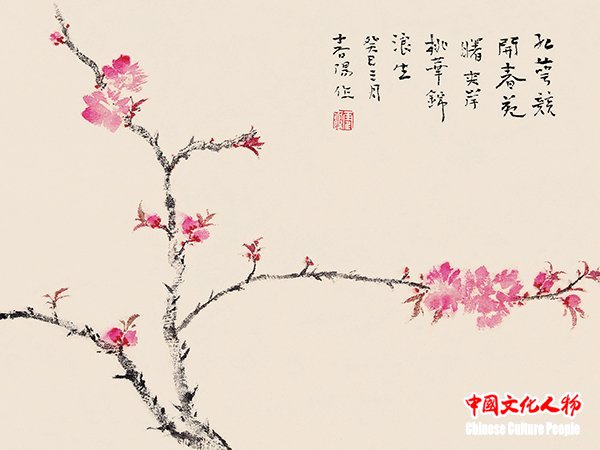 红萼競
開春苑
曙夾岸
桃華錦
浪生
癸巳三月
中國文化人物
Chinese Culture People